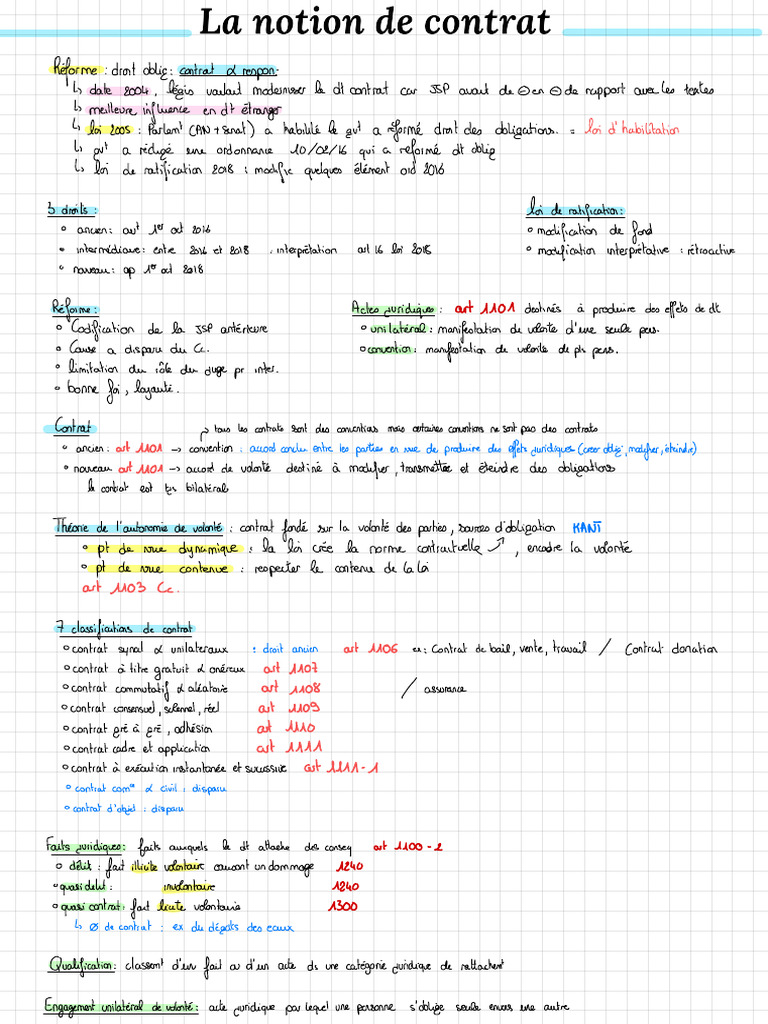 La notion de contrat
Réforme : droit oblig : contrat & respon.
↳ date 2004, légis voulait moderniser le dt contrat car JSP avait de ⊖ en ⊖ de rapport avec les textes
↳ meilleure influence en dt étranger
↳ loi 2005 : Parlemt (AN + Sénat) a habilité le gvt a réformé droit des obligations. = loi d'habilitation
↳ gvt a rédigé une ordonnance 10/02/16 qui a reformé dt oblig
↳ loi de ratification 2018 : modifie quelques élément ord 2016
3 droits :
• ancien : avt 1er oct 2016
• intermédiaire : entre 2016 et 2018 . interprétation art 16 loi 2018
• nouveau : ap 1er oct 2018
loi de ratification :
• modification de fond
• modification interprétative : rétroactive
Réforme :
• Codification de la JSP antérieure
• Cause a disparu du Cc.
• limitation du rôle du juge pr inter.
• bonne foi, loyauté.
Actes juridiques : art 1101 destinés à produire des effets de dt
• unilatéral : manifestation de volonté d'une seule pers.
• convention : manifestation de volonté de pls pers.
Contrat
↱ tous les contrats sont des conventions mais certaines conventions ne sont pas des contrats
• ancien : art 1101 → convention : accord conclu entre les parties en vue de produire des effets juridiques (créer oblig, modifier, éteindre)
• nouveau art 1101 → accord de volonté destiné à modifier, transmettre et éteindre des obligations
le contrat est tjs bilatéral
Théorie de l'autonomie de volonté : contrat fondé sur la volonté des parties, sources d'obligation KANT
• pt de vue dynamique : la loi crée la norme contractuelle ↗, encadre la volonté
• pt de vue contenue : respecter le contenue de la loi
art 1103 Cc.
7 classifications de contrat
• contrat synal & unilatéraux : droit ancien art 1106 ex : Contrat de bail, vente, travail / Contrat donation
• contrat à titre gratuit & onéreux art 1107
• contrat commutatif & aléatoire art 1108 / assurance
• contrat consensuel, solennel, réel art 1109
• contrat gré à gré, adhésion art 1110
• contrat cadre et application art 1111
• contrat à exécution instantanée et successive art 1111-1
• contrat com & civil : disparu
• contrat d'objet : disparu
Faits juridiques : faits auxquels le dt attache des conseq art 1100-2
• délit : fait illicite volontaire causant un dommage 1240
• quasi délit : involontaire 1240
• quasi contrat : fait licite volontaire 1300
↳ Ø de contrat : ex du dépôts des eaux
Qualification : classemt d'un fait ou d'un acte ds une catégorie juridique de rattachemt
Engagement unilatéral de volonté : acte juridique par lequel une personne s'oblige seule envers une autre